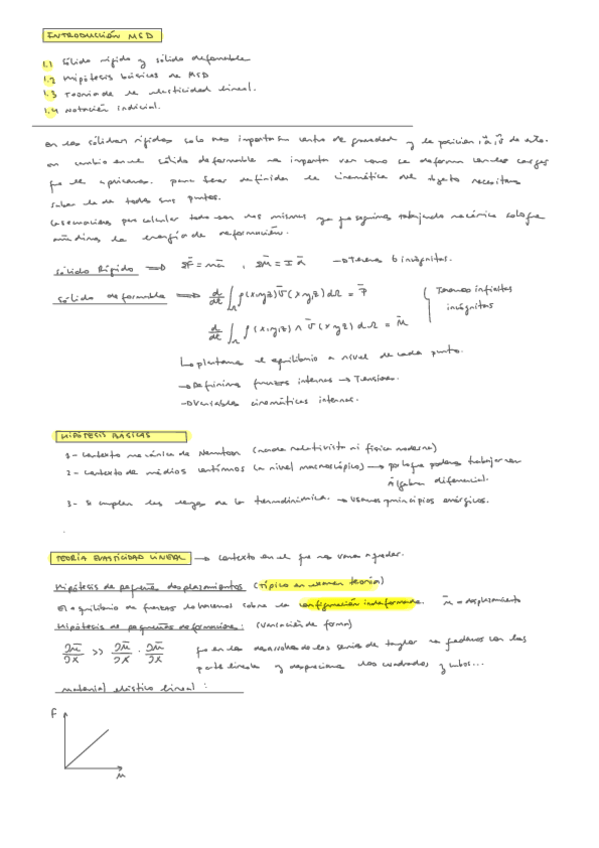 INTRODUCCIÓN MSD
1.1 Sólido rígido y sólido deformable
1.2 Hipótesis básicas de MSD
1.3 Teoría de la elasticidad lineal.
1.4 Notación indicial.
En los sólidos rígidos solo nos importa su centro de gravedad y la posición, a̅, v̅ de este.
en cambio en el sólido deformable nos importa ver como se deforma con las cargas
que le aplicamos. para tener definida la cinemática del objeto necesitamos
saber la de todos sus puntos.
Las ecuaciones para calcular todo son las mismas ya que seguimos trabajando mecánica solo que
añadimos la energía de deformación.
Sólido Rígido => ΣF̅ = ma̅ , ΣM̅ = I α̅ → Tenemos 6 incógnitas.
Sólido deformable => d/dt ∫Ω ρ(x,y,z) v̅(x,y,z) dΩ = F̅ { Tenemos infinitas incógnitas
d/dt ∫Ω ρ(x,y,z) ∧ v̅(x,y,z) dΩ = M̅
↳ plantamos el equilibrio a nivel de cada punto.
→ Definimos fuerzas internas → Tensiones.
→ Variables cinemáticas internas.
HIPÓTESIS BÁSICAS
1- Contexto mecánica de Newton (nada relativista ni física moderna)
2- Contexto de medios continuos (a nivel macroscópico) → por lo que podemos trabajar con
álgebra diferencial.
3- Se cumplen las leyes de la termodinámica. → Usamos principios enérgicos.
TEORÍA ELASTICIDAD LINEAL → contexto en el que nos vamos a quedar.
Hipótesis de pequeños desplazamientos (Típico en examen teoría)
El equilibrio de fuerzas lo hacemos sobre la configuración indeformada. u̅ = desplazamiento
Hipótesis de pequeñas deformaciones: (variación de forma)
∂u̅/∂x >> ∂u̅/∂x · ∂u̅/∂x que en los desarrollos de las series de taylor nos quedamos con las
parte lineales y despreciamos los cuadrados y cubos...
material elástico lineal :
F
u